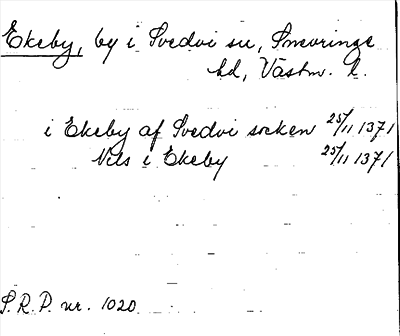 Ekeby, by i Svedvi sn, Snevringe
hd, Västm. l.
i Ekeby af Svedvi socken 25/11 1371
Nils i Ekeby 25/11 1371
S.R.P. nr. 1020